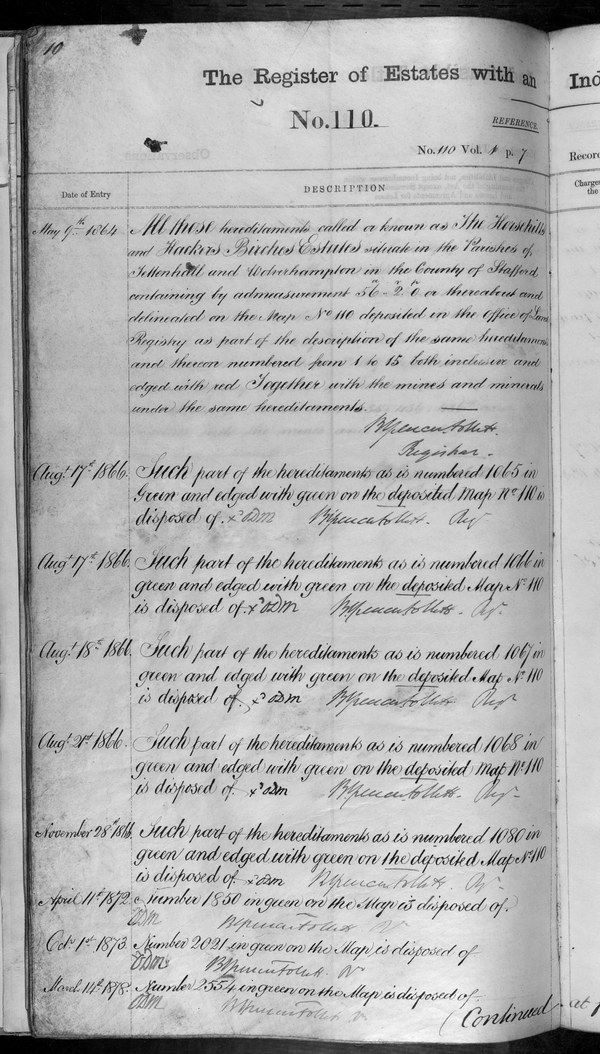 10
The Register of Estates with an
Ind
No. 110.
REFERENCE.
No. 110 Vol. 1 p. 7
Record
Charges
the
Date of Entry
DESCRIPTION
May 9th 1864
All those hereditaments called or known as The Horsehills
and Hackers Birches Estates situate in the Parishes of
Tettenhall and Wolverhampton in the County of Stafford
containing by admeasurement or thereabout and
delineated on the Map No 110 deposited in the Office of Land
Registry as part of the description of the same hereditaments
and thereon numbered from 1 to 15 both inclusive and
edged with red Together with the mines and minerals
under the same hereditaments.
Registrar.
Augt. 17th 1866.
Such part of the hereditaments as is numbered 1065 in
Green and edged with green on the deposited Map No 110 is
disposed of. Regr
Augt 17th 1866.
Such part of the hereditaments as is numbered 1066 in
green and edged with green on the deposited Map No. 110
is disposed of. Regr.
Augt. 18th 1866.
Such part of the hereditaments as is numbered 1067 in
green and edged with green on the deposited Map No 110
is disposed of. Regr
Augt. 21st 1866.
Such part of the hereditaments as is numbered 1068 in
green and edged with green on the deposited Map No. 110
is disposed of. Regr
November 28th 1866.
Such part of the hereditaments as is numbered 1080 in
green and edged with green on the deposited Map No. 110
is disposed of. Rr
April 11th 1872.
Number 1850 in green on the Map is disposed of.
Octr 1st 1873.
Number 2021 in green on the Map is disposed of
March 14th 1878.
Number 2554 in green on the Map is disposed of
(Continued at